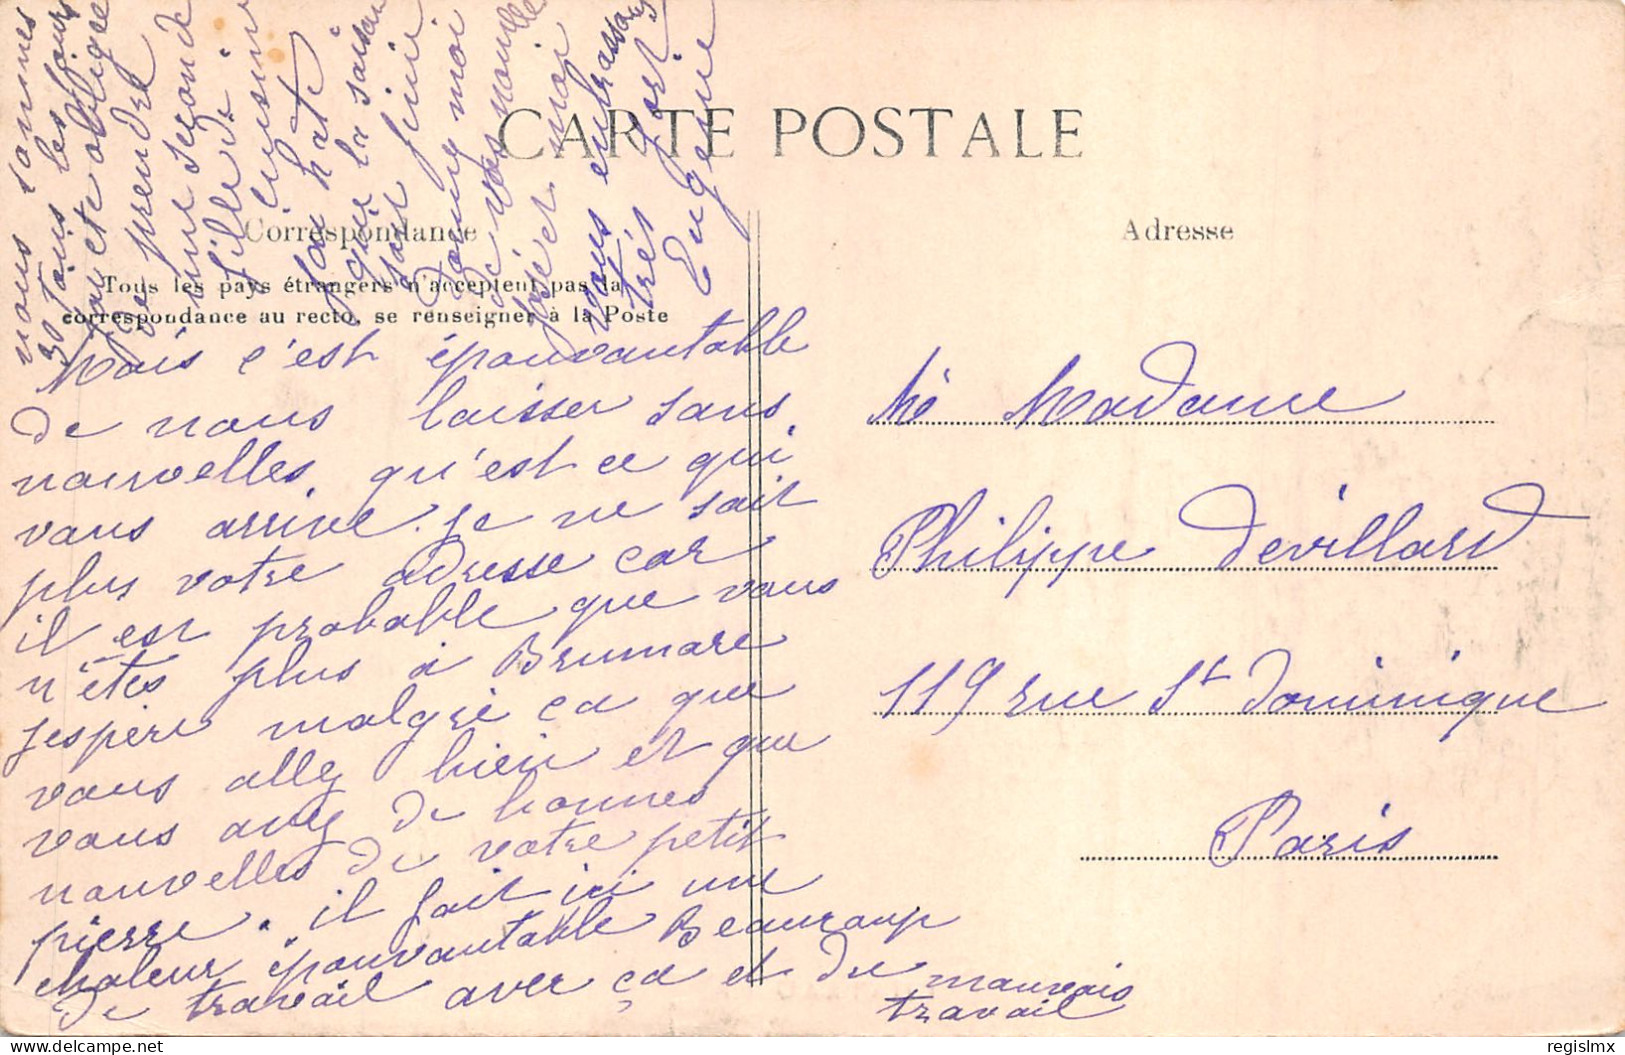 CARTE POSTALE
Correspondance
Adresse
Tous les pays étrangers n'acceptent pas la
correspondance au recto, se renseigner à la Poste
Mais c'est épouvantable
de nous laisser sans
nouvelles, qu'est ce qui
vous arrive. je ne sait
plus votre adresse car
il est probable que vous
n'êtes plus à Brumare
j'espère malgré ca que
vous allez bien et que
vous avez de bonnes
nouvelles de votre petit
pierre. il fait ici une
chaleur épouvantable Beaucoup
de travail avec ça et du mauvais
travail
nous sommes
30 tous les jours
j'ai ete obligée
de prendre
une seconde
fille de
cuisine
j'ai hate
que la saison
soit finie
donnez moi
de vos nouvelles
José et moi
vous embrassons
très fort
Eugenie
Madame
Philippe Devillard
119 rue St Dominique
Paris
regislmx